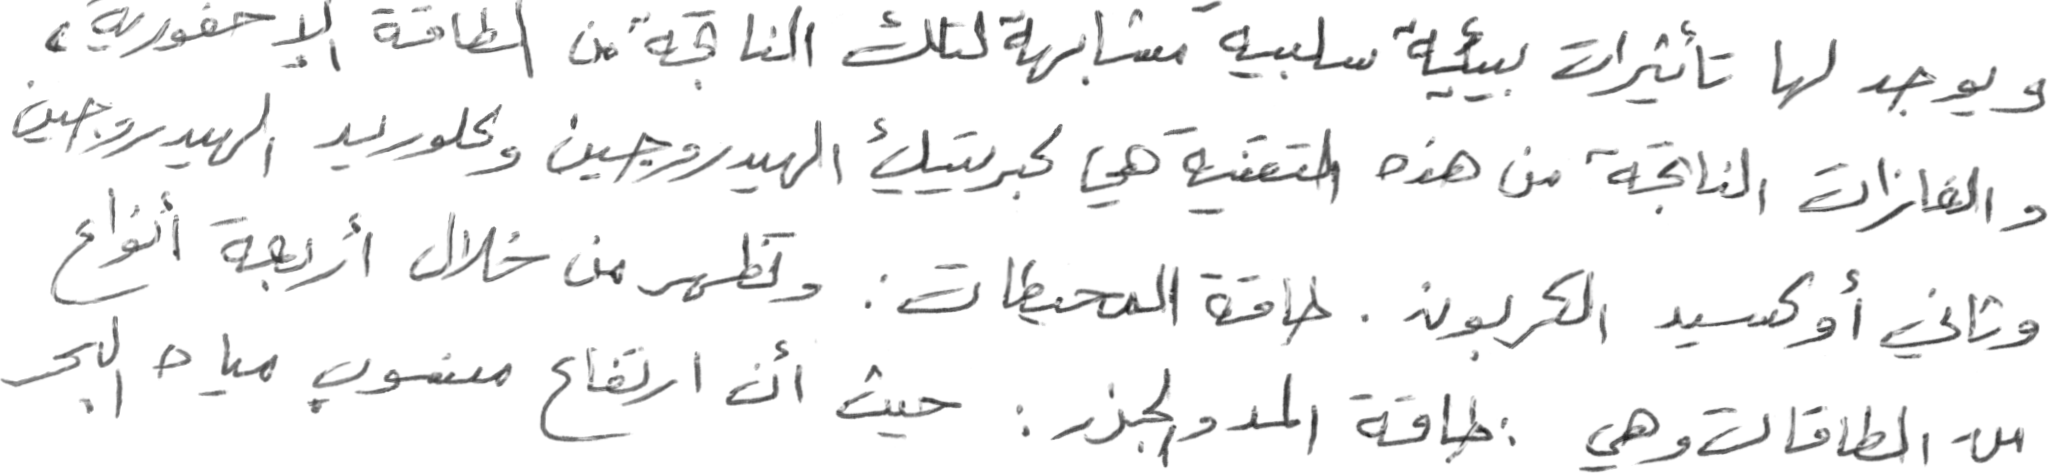 ويوجد لها تأثيرات بيئية سلبية مشابهة لتلك الناتجة من الطاقة الإحفورية،
والغازات الناتجة من هذه التقنية هي كبريتيك الهيدروجين وكلوريد الهيدروجين
وثاني أوكسيد الكربون. طاقة المحيطات: وتظهر من خلال أربعة أنواع
من الطاقات وهي: طاقة المد والجزر: حيث أن ارتفاع منسوب مياه البحر